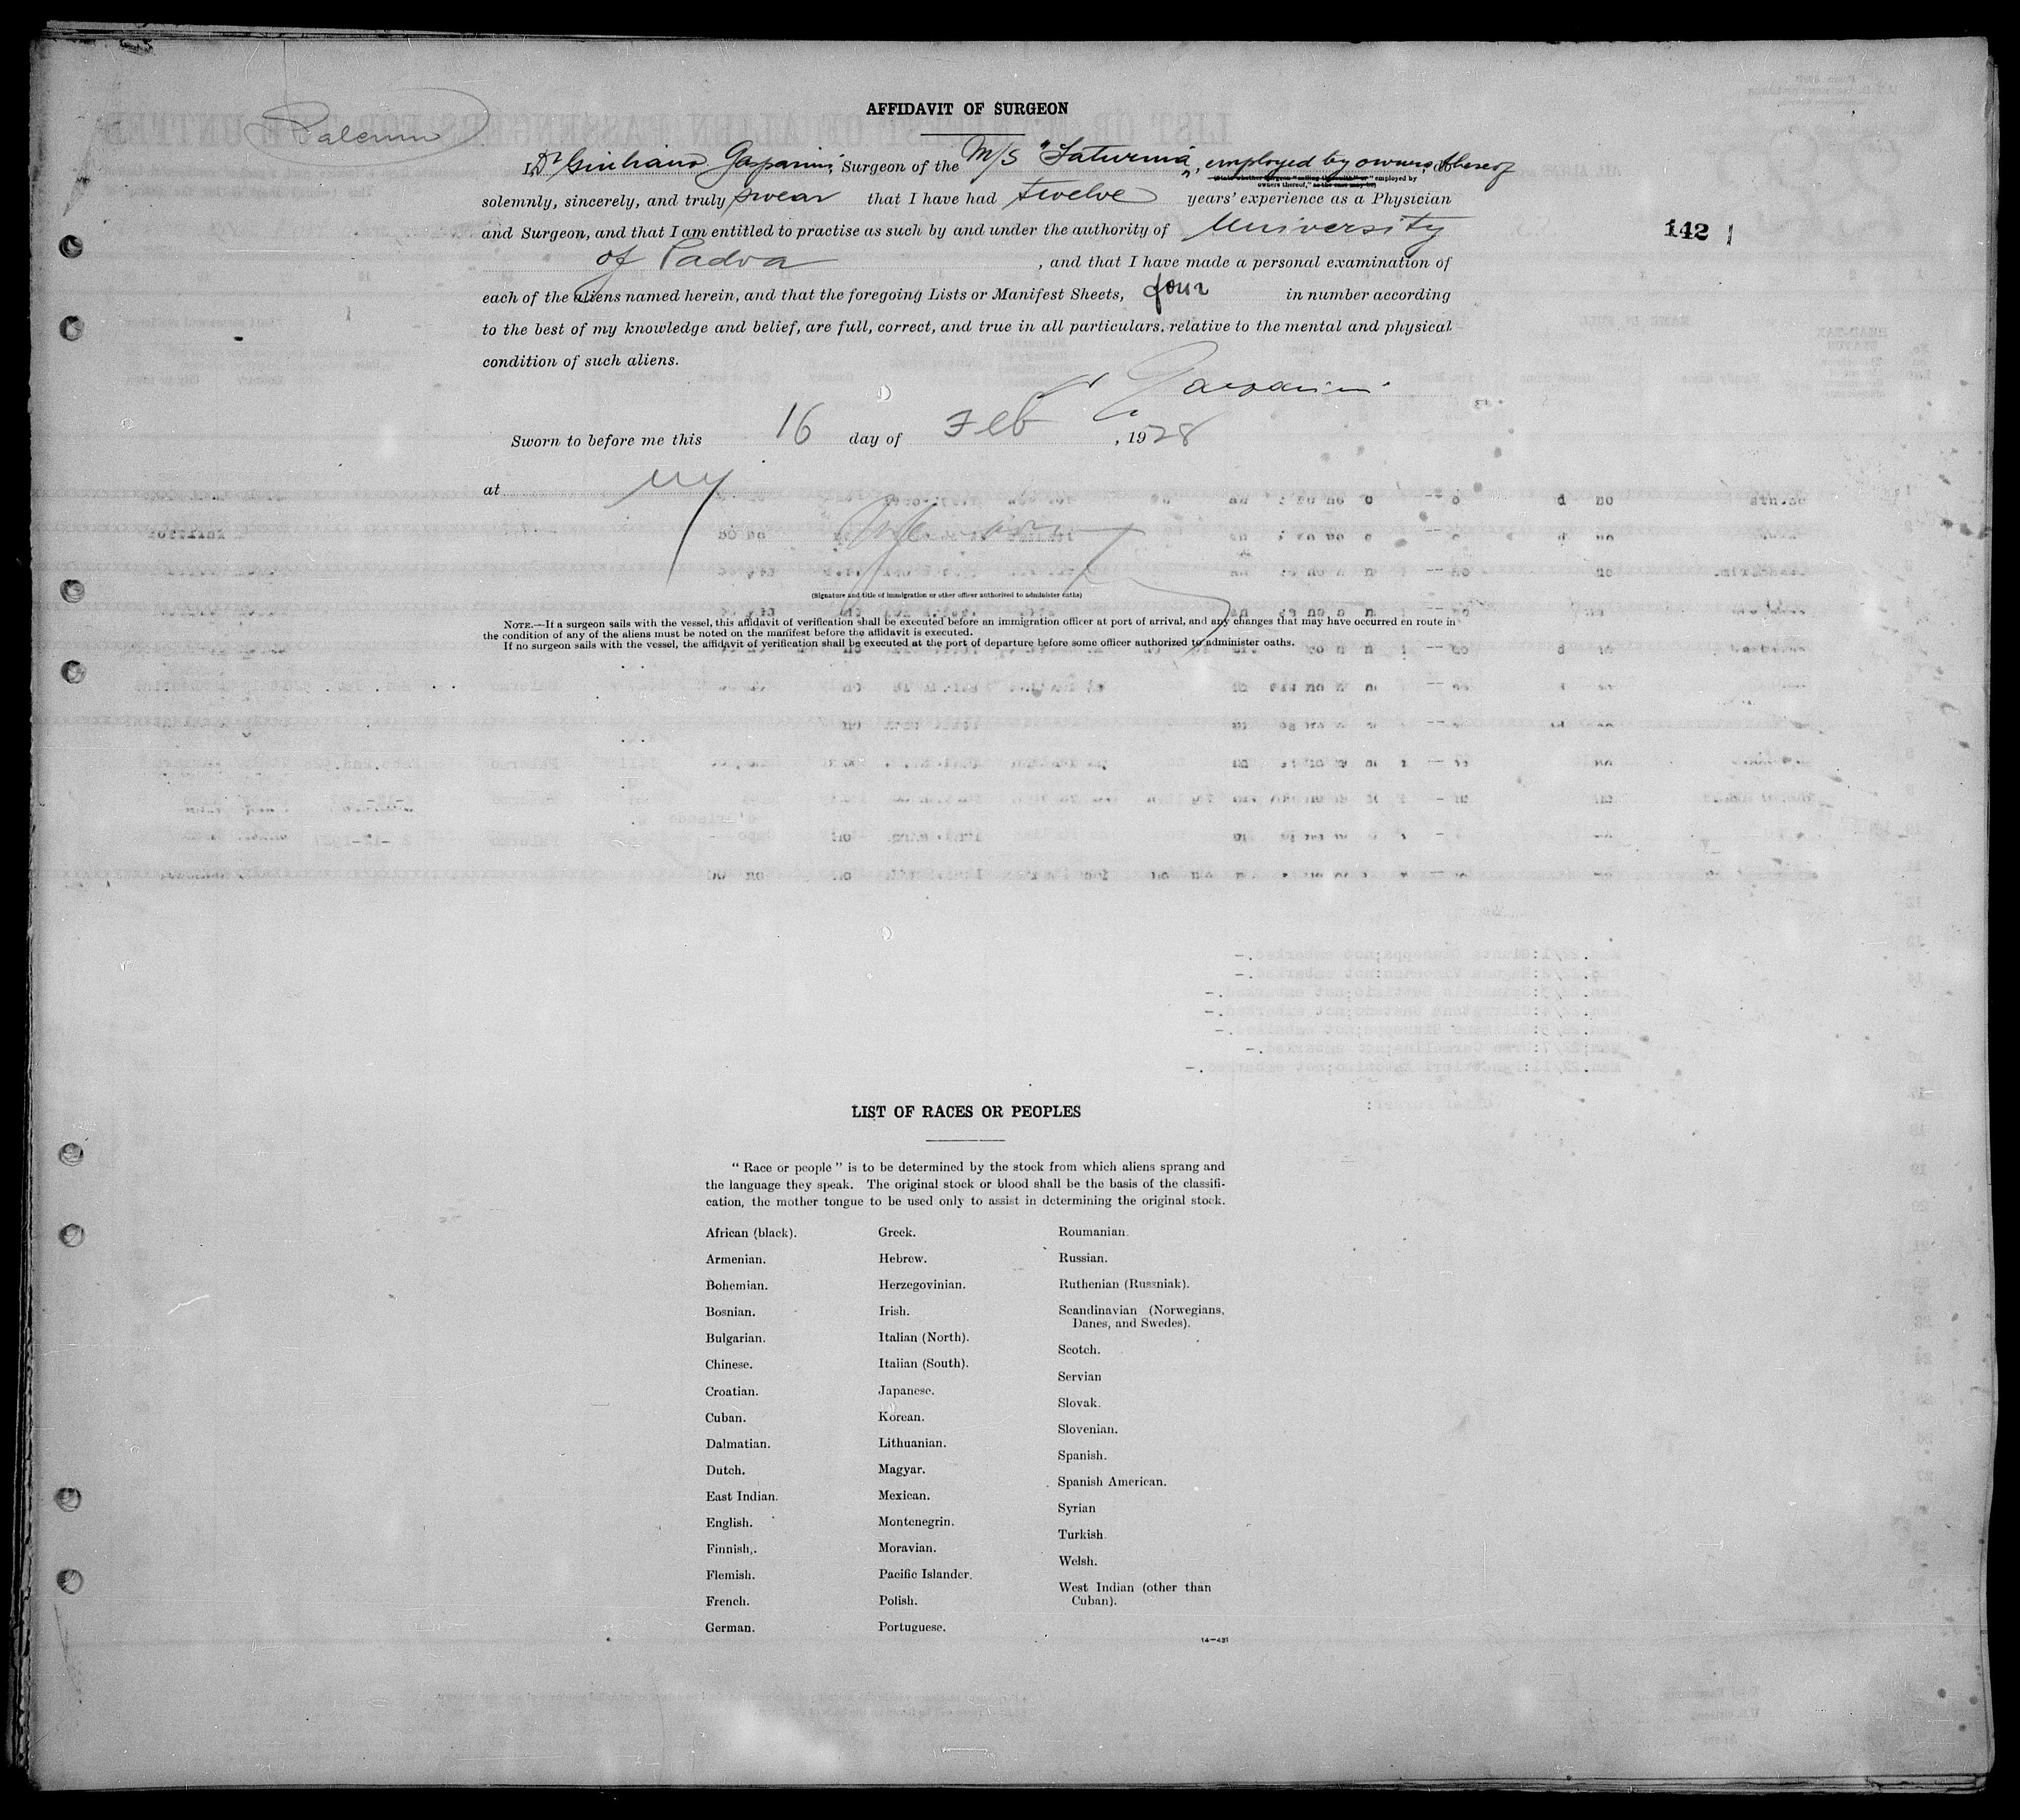 Palermo
AFFIDAVIT OF SURGEON
I, Dr Giuliano Gasparini, Surgeon of the M/S "Saturnia", employed by owners thereof, do
(State whether surgeon "sailing therewith" or "employed by
owners thereof," as the case may be)
solemnly, sincerely, and truly swear that I have had twelve years' experience as a Physician
and Surgeon, and that I am entitled to practise as such by and under the authority of University
142
of Padva, and that I have made a personal examination of
each of the aliens named herein, and that the foregoing Lists or Manifest Sheets, four in number according
to the best of my knowledge and belief, are full, correct, and true in all particulars, relative to the mental and physical
condition of such aliens.
Dr Gasparini
Sworn to before me this 16 day of Feb, 1928
at NY
(Signature and title of immigration or other officer authorized to administer oaths)
NOTE.—If a surgeon sails with the vessel, this affidavit of verification shall be executed before an immigration officer at port of arrival, and any changes that may have occurred en route in
the condition of any of the aliens must be noted on the manifest before the affidavit is executed.
If no surgeon sails with the vessel, the affidavit of verification shall be executed at the port of departure before some officer authorized to administer oaths.
LIST OF RACES OR PEOPLES
"Race or people" is to be determined by the stock from which aliens sprang and
the language they speak. The original stock or blood shall be the basis of the classifi-
cation, the mother tongue to be used only to assist in determining the original stock.
African (black).
Armenian.
Bohemian.
Bosnian.
Bulgarian.
Chinese.
Croatian.
Cuban.
Dalmatian.
Dutch.
East Indian.
English.
Finnish.
Flemish.
French.
German.
Greek.
Hebrew.
Herzegovinian.
Irish.
Italian (North).
Italian (South).
Japanese.
Korean.
Lithuanian.
Magyar.
Mexican.
Montenegrin.
Moravian.
Pacific Islander.
Polish.
Portuguese.
Roumanian.
Russian.
Ruthenian (Russniak).
Scandinavian (Norwegians,
Danes, and Swedes).
Scotch.
Servian
Slovak.
Slovenian.
Spanish.
Spanish American.
Syrian
Turkish.
Welsh.
West Indian (other than
Cuban).
14—431